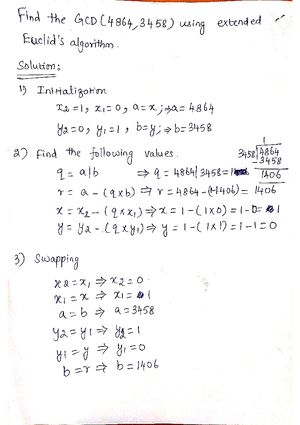 Find the GCD(4864, 3458) using extended
Euclid's algorithm.
Solution:
1) Initialization
x2=1, x1=0, a=x ⇒ a= 4864
y2=0, y1=1, b=y ⇒ b=3458
2) Find the following values.
q = a/b ⇒ q = 4864/3458 = 1
r = a - (q×b) ⇒ r = 4864 - = 1406
x = x2 - (q×x1) ⇒ x = 1-(1×0) = 1-0= 1
y = y2 - (q×y1) ⇒ y = 1-(1×1) = 1-1=0
1
3458 4864
-3458
1406
3) Swapping
x2=x1 ⇒ x2=0
x1 = x ⇒ x1= 1
a=b ⇒ a=3458
y2=y1 ⇒ y2=1
y1=y ⇒ y1=0
b=r ⇒ b=1406